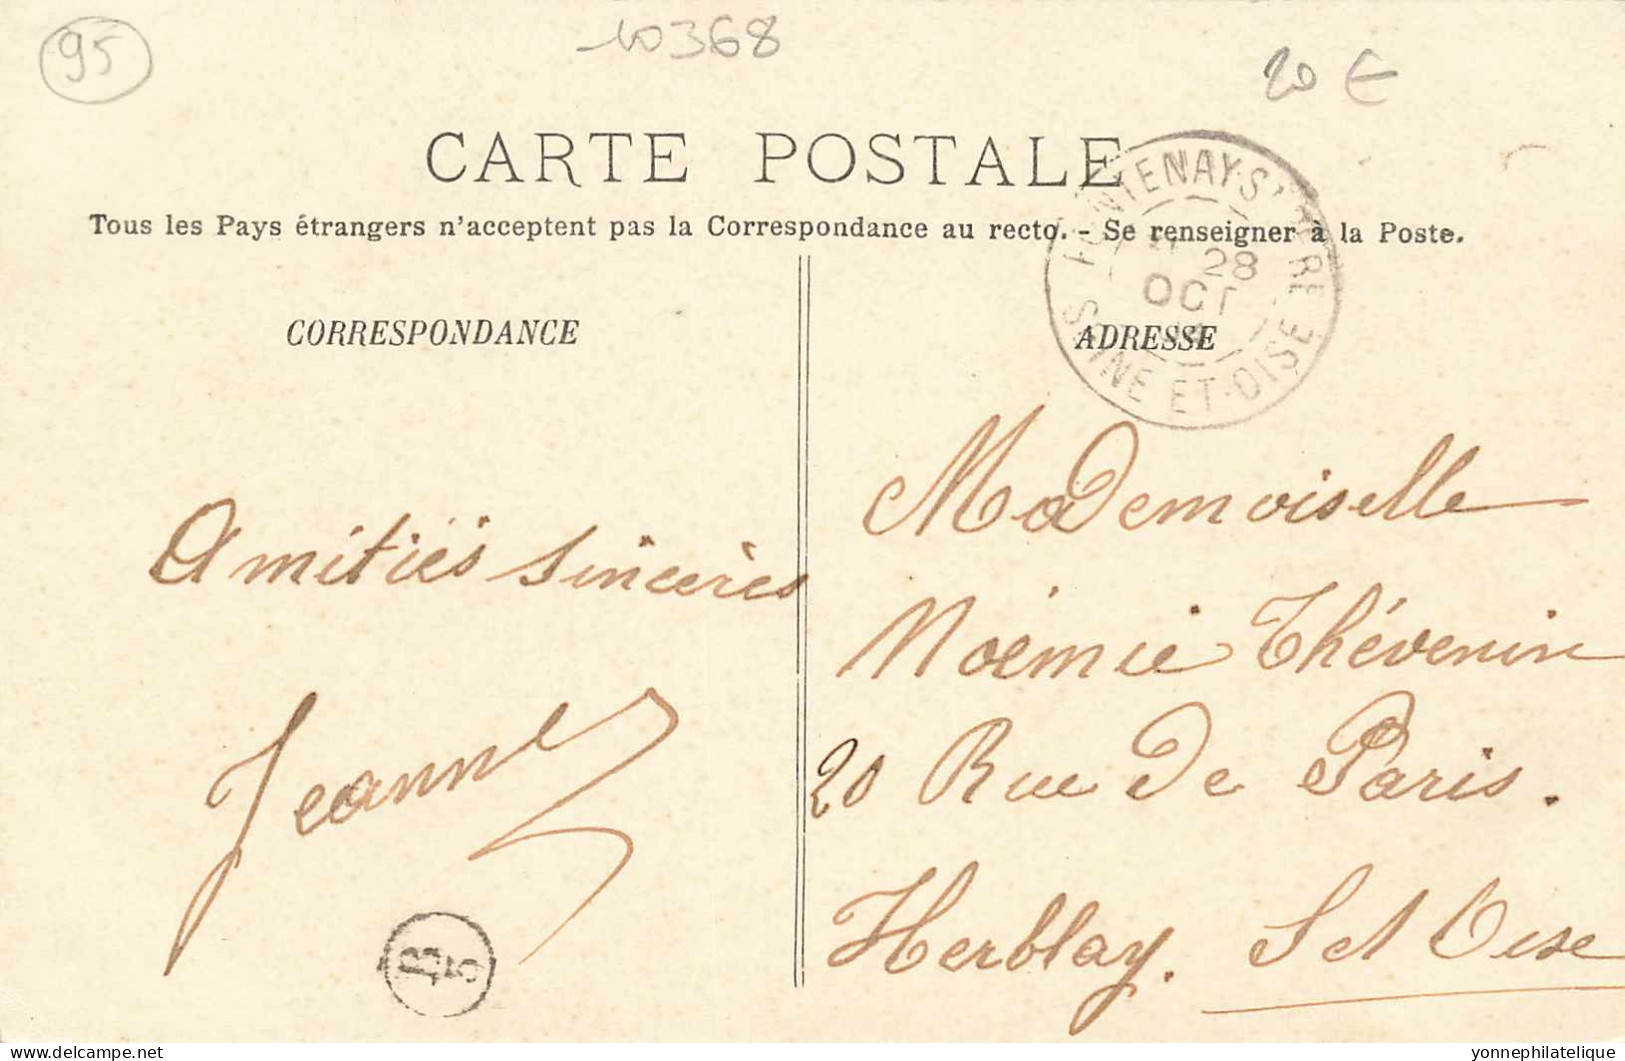 95
10368
20 €
CARTE POSTALE
Tous les Pays étrangers n'acceptent pas la Correspondance au recto. - Se renseigner à la Poste.
28
OCT
SEINE-ET-OISE
CORRESPONDANCE
ADRESSE
Amitiés sincères
Jeanne
Mademoiselle
Noémie Thévenin
20 Rue de Paris.
Herblay. S et Oise
B
5
yonnephilatelique